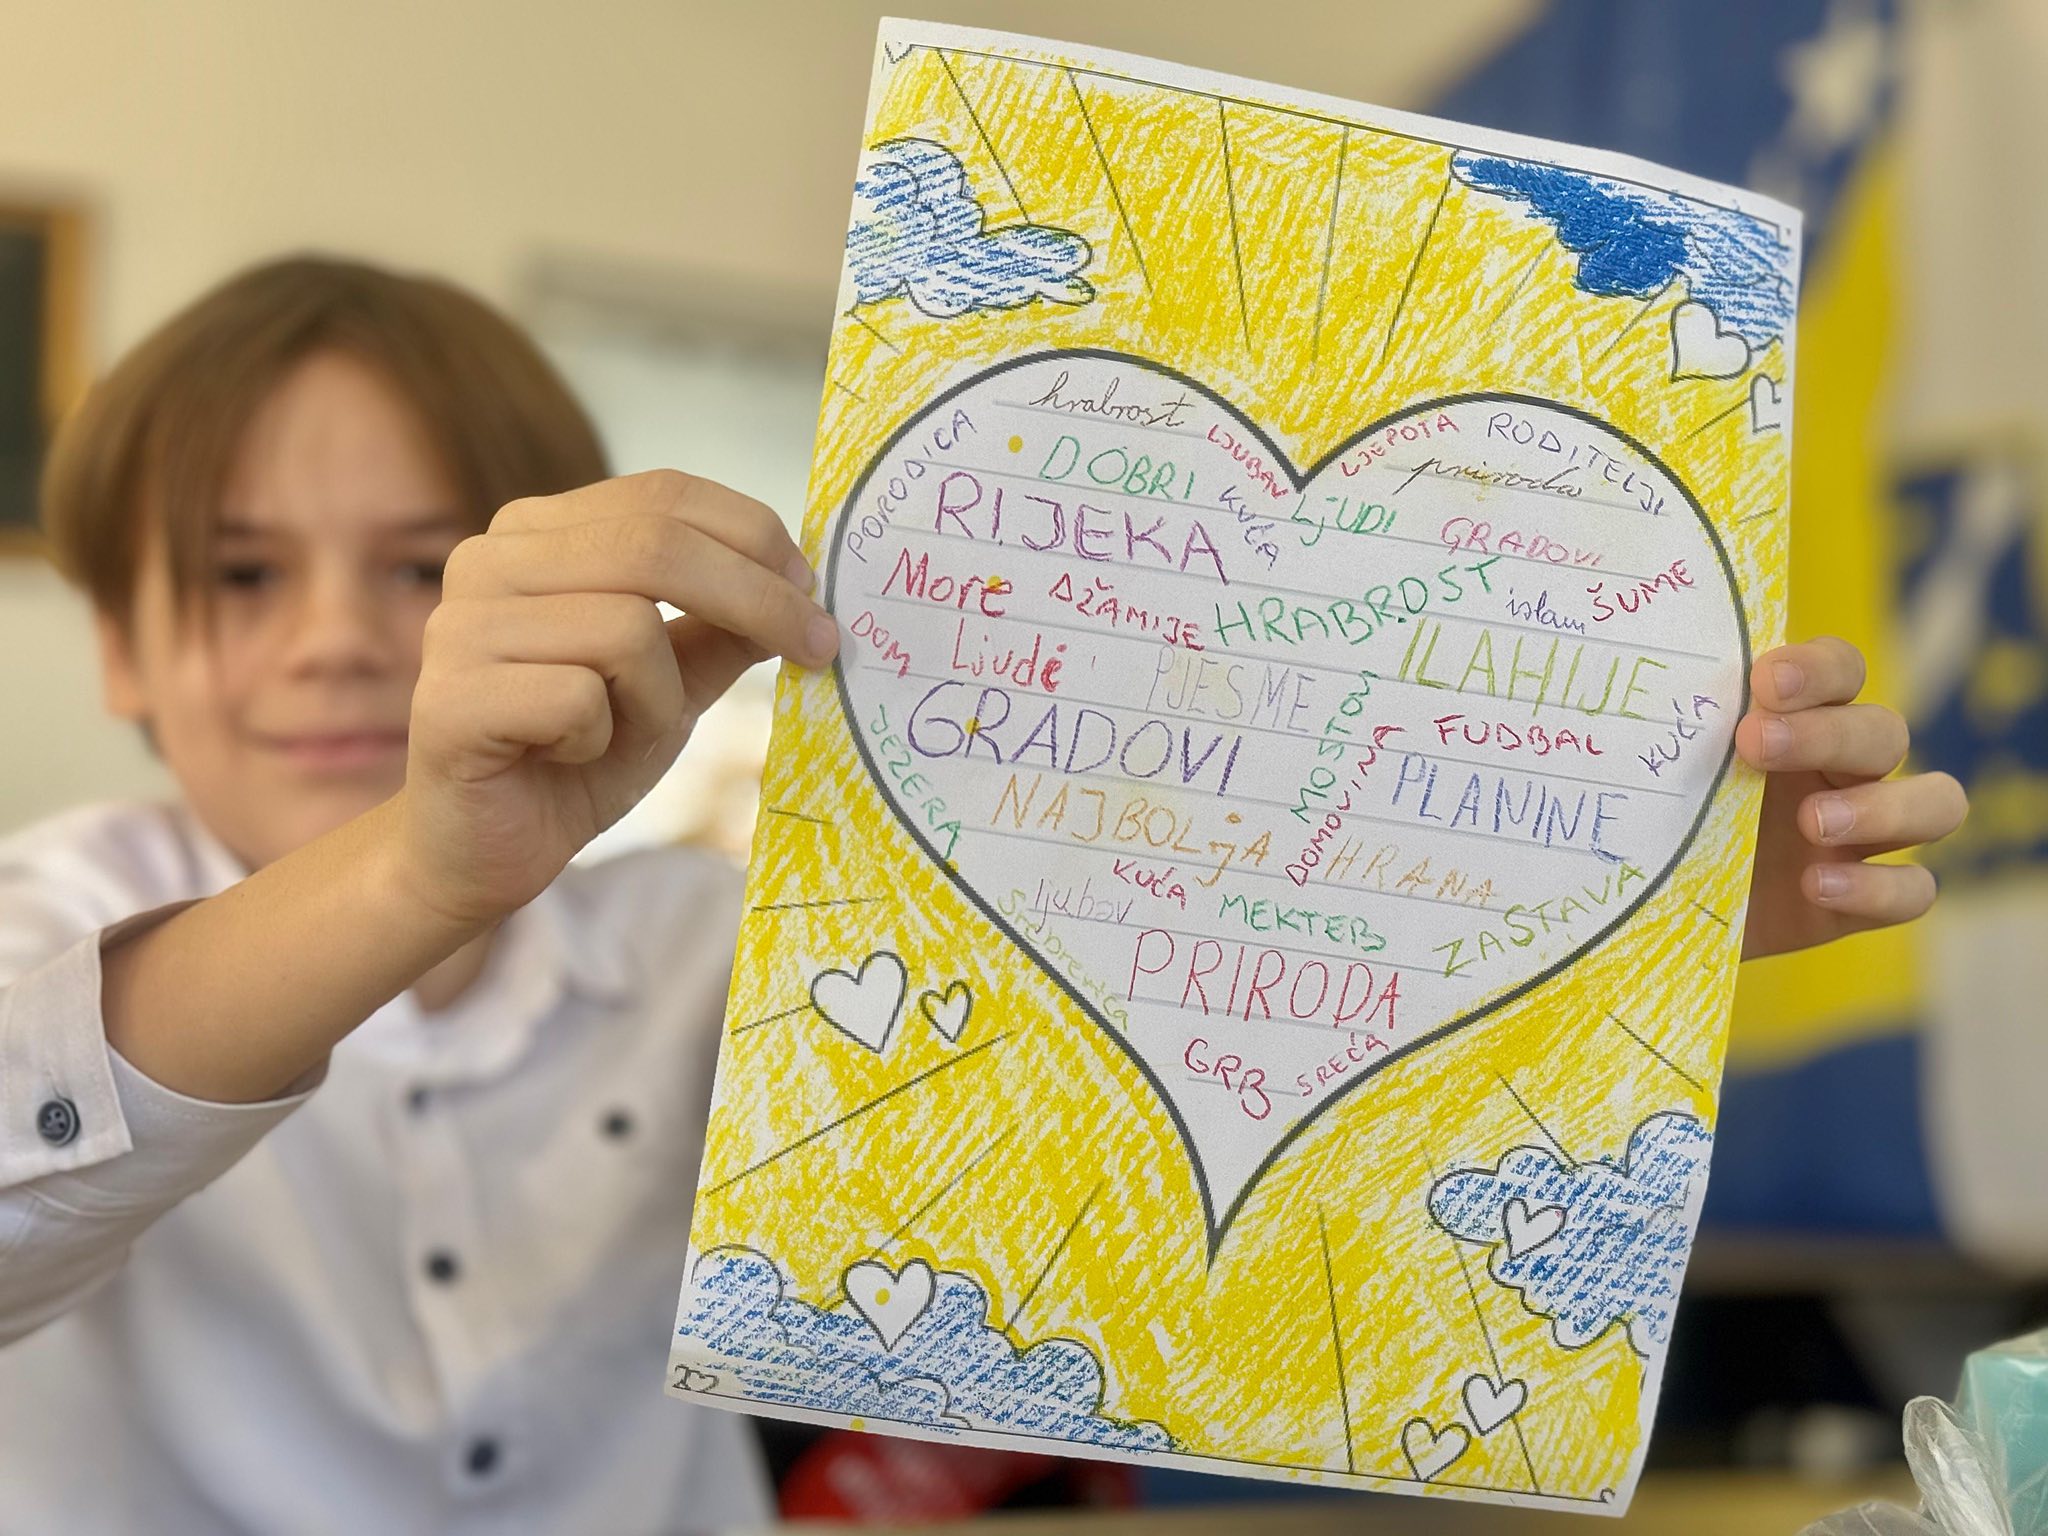 hrabrost
PORODICA
LJUBAV
LJEPOTA
RODITELJI
DOBRI
KUĆA
LjUDI
priroda
RIJEKA
GRADOVI
More
DŽAMIJE
HRABROST
islam
ŠUME
DOM
Ljudi
PJESME
ILAHIJE
GRADOVI
FUDBAL
KUĆA
JEZERA
MOSTOVI
DOMOVINA
PLANINE
NAJBOLjA
HRANA
KUĆA
ljubav
MEKTEB
ZASTAVA
SREBRENICA
PRIRODA
GRB
SREĆA